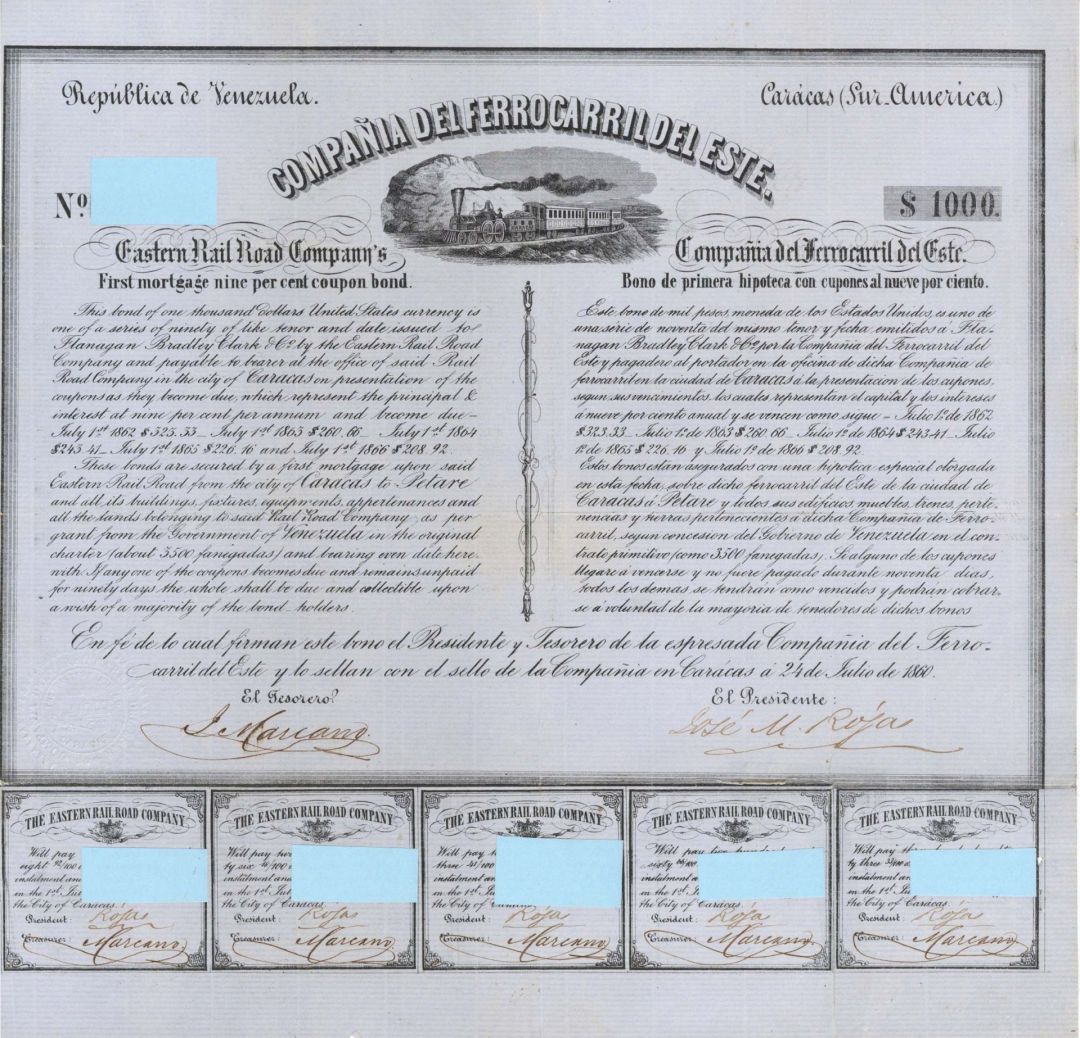 República de Venezuela.
Carácas (Sur-America.)
COMPAÑIA DEL FERROCARRIL DEL ESTE.
Nº
$ 1000.
Eastern Rail Road Company's
First mortgage nine per cent coupon bond.
This bond of one thousand Dollars United States currency is
one of a series of ninety of like tenor and date issued to
Flanagan Bradley Clark & Cº by the Eastern Rail Road
Company and payable to bearer at the office of said Rail
Road Company in the city of Caracas on presentation of the
coupons as they become due, which represent the principal &
interest at nine per cent per annum and become due—
July 1st 1862 $323.33— July 1st 1863 $260.66— July 1st 1864
$243.41— July 1st 1865 $226.16 and July 1st 1866 $208.92.
These bonds are secured by a first mortgage upon said
Eastern Rail Road from the city of Caracas to Petare
and all its buildings, fixtures, equipments, appertenances and
all the lands belonging to said Rail Road Company as per
grant from the Government of Venezuela in the original
charter (about 3500 fanegadas) and bearing even date here-
with. If any one of the coupons becomes due and remains unpaid
for ninety days the whole shall be due and collectible upon
a wish of a majority of the bond-holders.
Compañia del Ferrocarril del Este.
Bono de primera hipoteca con cupones al nueve por ciento.
Este bono de mil pesos, moneda de los Estados Unidos, es uno de
una série de noventa del mismo tenor y fecha emitidos á Fla-
nagan Bradley Clark & Cº por la Compañia del Ferrocarril del
Este y pagadero al portador en la oficina de dicha Compañia de
ferrocarril en la ciudad de Carácas á la presentacion de los cupones,
segun sus vencimientos, los cuales representan el capital y los intereses
á nueve por ciento anual y se vencen como sigue — Julio 1º de 1862
$323.33— Julio 1º de 1863 $260.66— Julio 1º de 1864 $243.41— Julio
1º de 1865 $226.16 y Julio 1º de 1866 $208.92.
Estos bonos estan asegurados con una hipoteca especial otorgada
en esta fecha, sobre dicho ferrocarril del Este de la ciudad de
Carácas á Petare y todos sus edificios, muebles, trenes, perte-
nencias y tierras pertenecientes á dicha Compañia de Ferro-
carril, segun concesion del Gobierno de Venezuela en el con-
trato primitivo (como 3500 fanegadas). Si alguno de los cupones
llegare á vencerse y no fuere pagado durante noventa dias,
todos los demas se tendrán como vencidos y podrán cobrar-
se á voluntad de la mayoria de tenedores de dichos bonos.
En fé de lo cual firman este bono el Presidente y Tesorero de la espresada Compañia del Ferro-
carril del Este y lo sellan con el sello de la Compañia en Carácas á 24 de Julio de 1860.
El Tesorero:
El Presidente:
J. Marcano.
José M. Rójas
THE EASTERN RAIL ROAD COMPANY
Will pay
eight 92/100
instalment an
in the 1st Ju
the City of Caracas.
President: Rójas
Treasurer: Marcano
THE EASTERN RAIL ROAD COMPANY
Will pay
ty six 16/100
instalment an
in the 1st Ju
the City of Caracas.
President: Rójas
Treasurer: Marcano
THE EASTERN RAIL ROAD COMPANY
Will pay
three 41/100
instalment an
in the 1st Ju
the City of
President: Rójas
Treasurer: Marcano
THE EASTERN RAIL ROAD COMPANY
Will pay
sixty 66/100
instalment an
in the 1st J
the City of Caracas.
President: Rójas
Treasurer: Marcano
THE EASTERN RAIL ROAD COMPANY
Will pay
ty three 33/100
instalment an
in the 1st Ju
the City of Caracas.
President: Rójas
Treasurer: Marcano